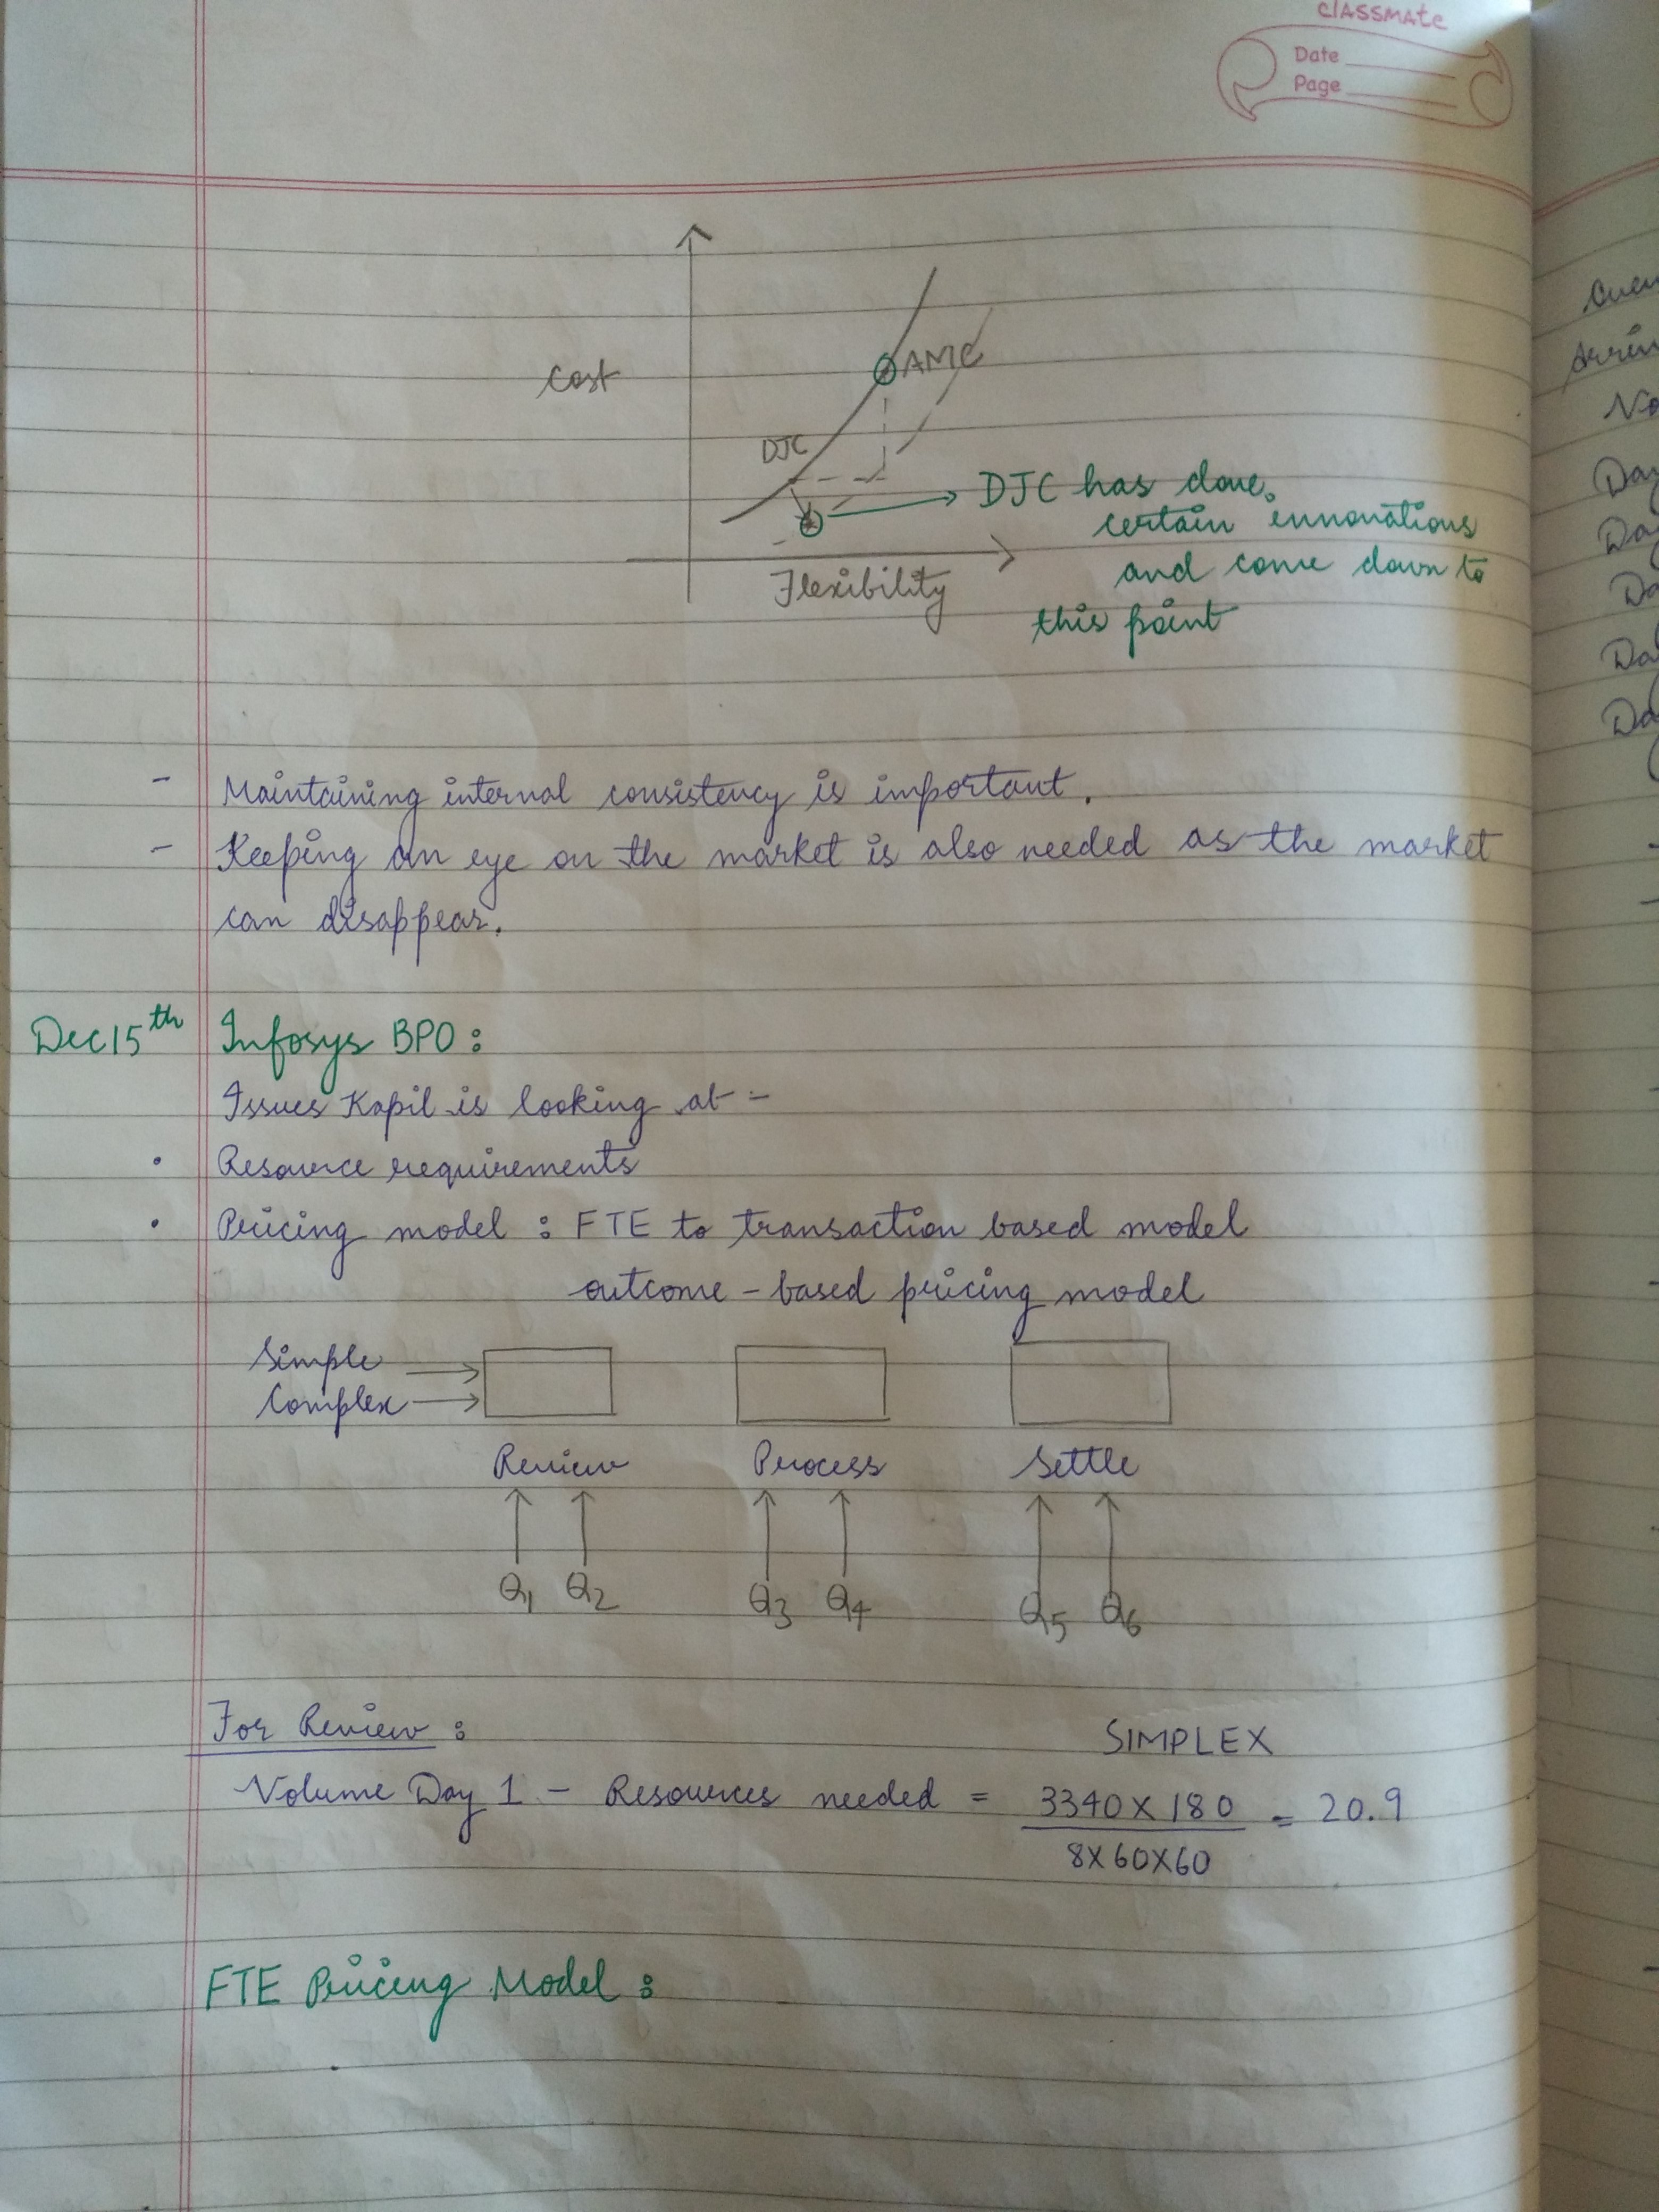 classmate
Date
Page
Cost
AMC
DJC
DJC has done
certain ennovations
and come down to
this point
Flexibility
- Maintaining internal consistency is important.
- Keeping an eye on the market is also needed as the market
can disappear.
Dec 15th Infosys BPO :
Issues Kapil is looking at -
• Resource requirements
• Pricing model : FTE to transaction based model
outcome - based pricing model
Simple
Complex
Review Process Settle
Q1 Q2 Q3 Q4 Q5 Q6
For Review :
SIMPLEX
Volume Day 1 - Resources needed = 3340 X 180 = 20.9
8X60X60
FTE Pricing Model :
Day
Da
Da
Da
Da